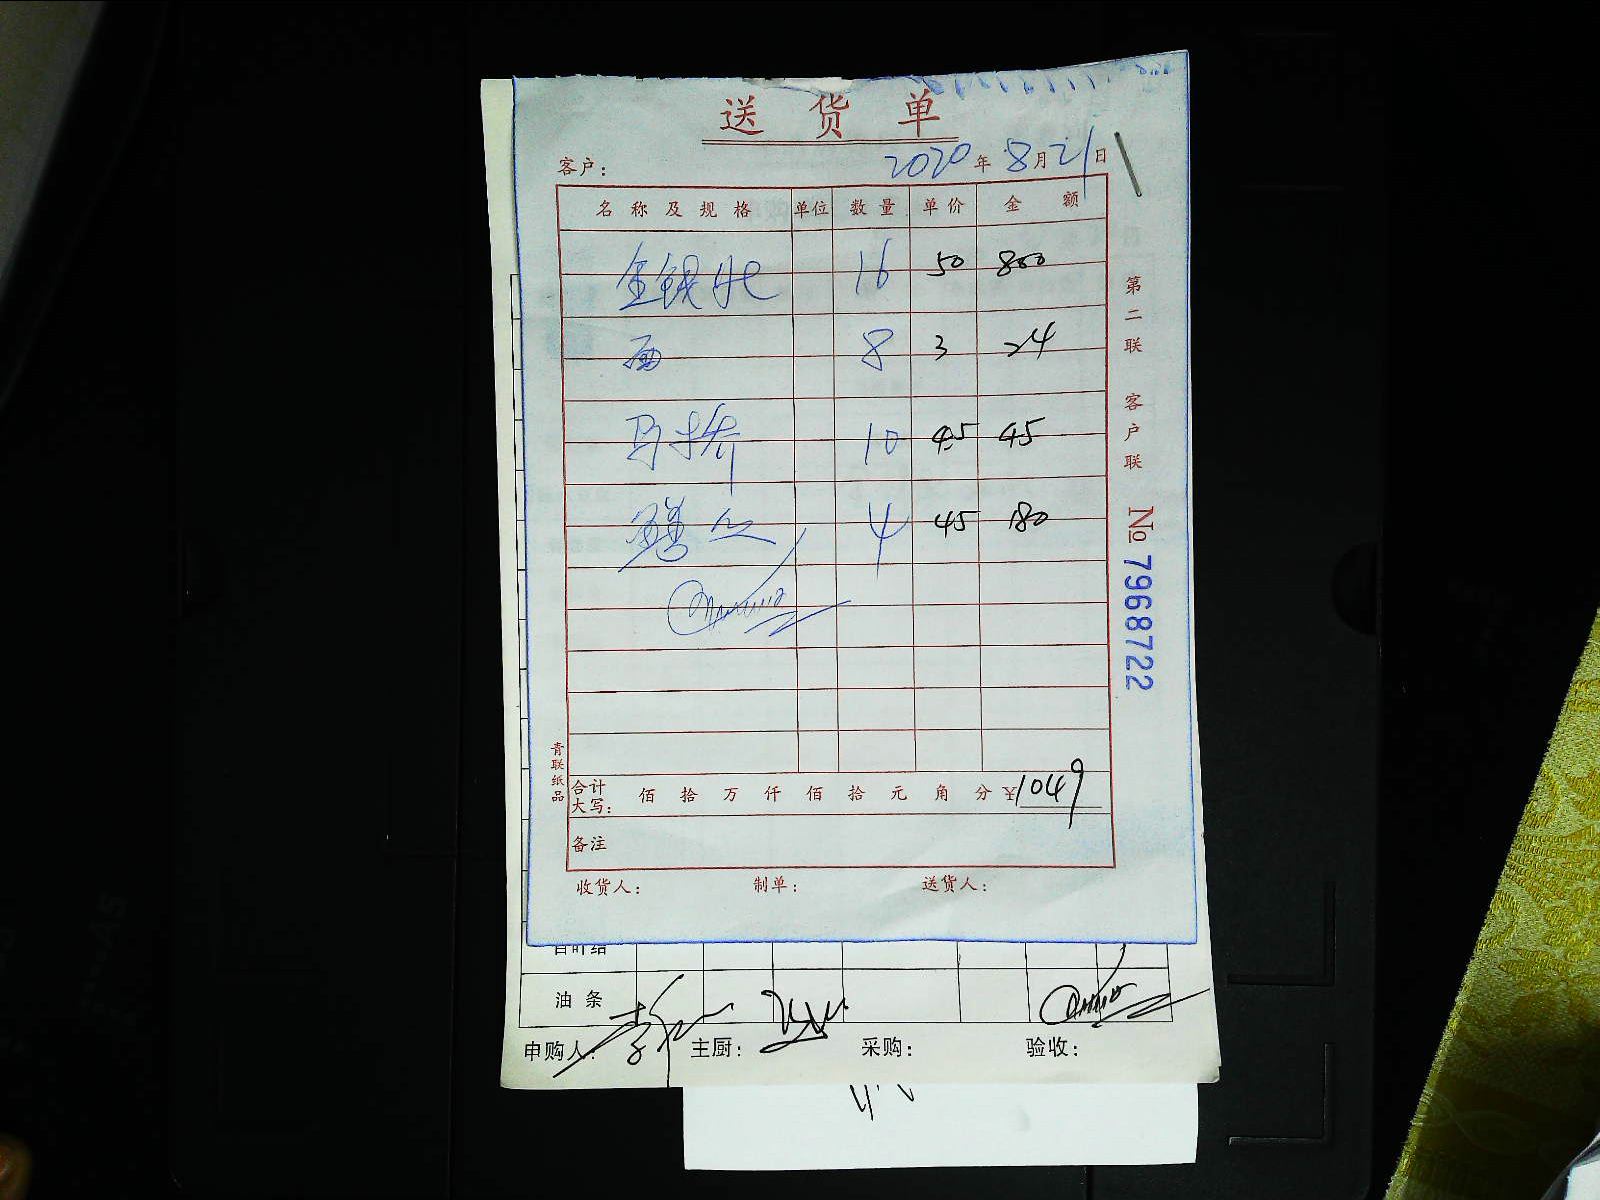 送货单
客户: 2020年8月21日
名称及规格 单位 数量 单价 金额
16 50 800
8 3 24
马 10 4.5 45
4 45 180
合计大写: 佰 拾 万 仟 佰 拾 元 角 分 ¥1049
备注
收货人: 制单: 送货人:
第二联 客户联
No 7968722
青联纸品
百叶结
油条
申购人: 主厨: 采购: 验收: